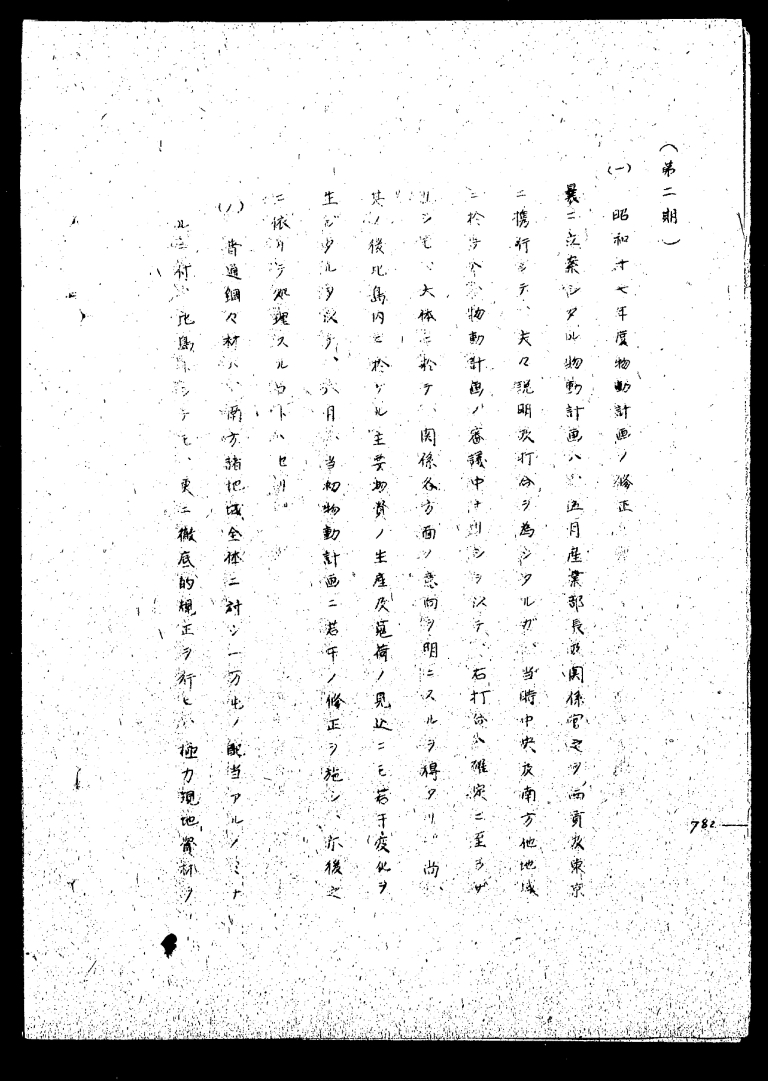 (第二期)
(一) 昭和十七年度物動計画ノ修正
曩ニ立案シタル物動計画ハ、五月産業部長及関係官之ヲ西貢及東京
ニ携行シテ、夫々説明及打合ヲ為シタルガ、当時中央及南方他地域
ニ於テハ、物動計画ノ審議中ナリシヲ以テ、右打合ハ確定ニ至ラザ
リシモ、大体ニ於テ、関係各方面ノ意向ヲ明ニスルヲ得タリ。尚、
其ノ後比島内ニ於ケル主要物資ノ生産及冠荷ノ見込ニモ若干変化ヲ
生ジタルヲ以テ、六月、当初物動計画ニ若干ノ修正ヲ施シ、爾後之
ニ依リテ処理スルコトトセリ。
(ノ) 普通鋼々材ハ、南方諸地域全体ニ対シ一万屯ノ配当アルノミナ
ルニ付、比島トシテモ、更ニ徹底的規正ヲ行ヒ、極力現地資材ヲ
782